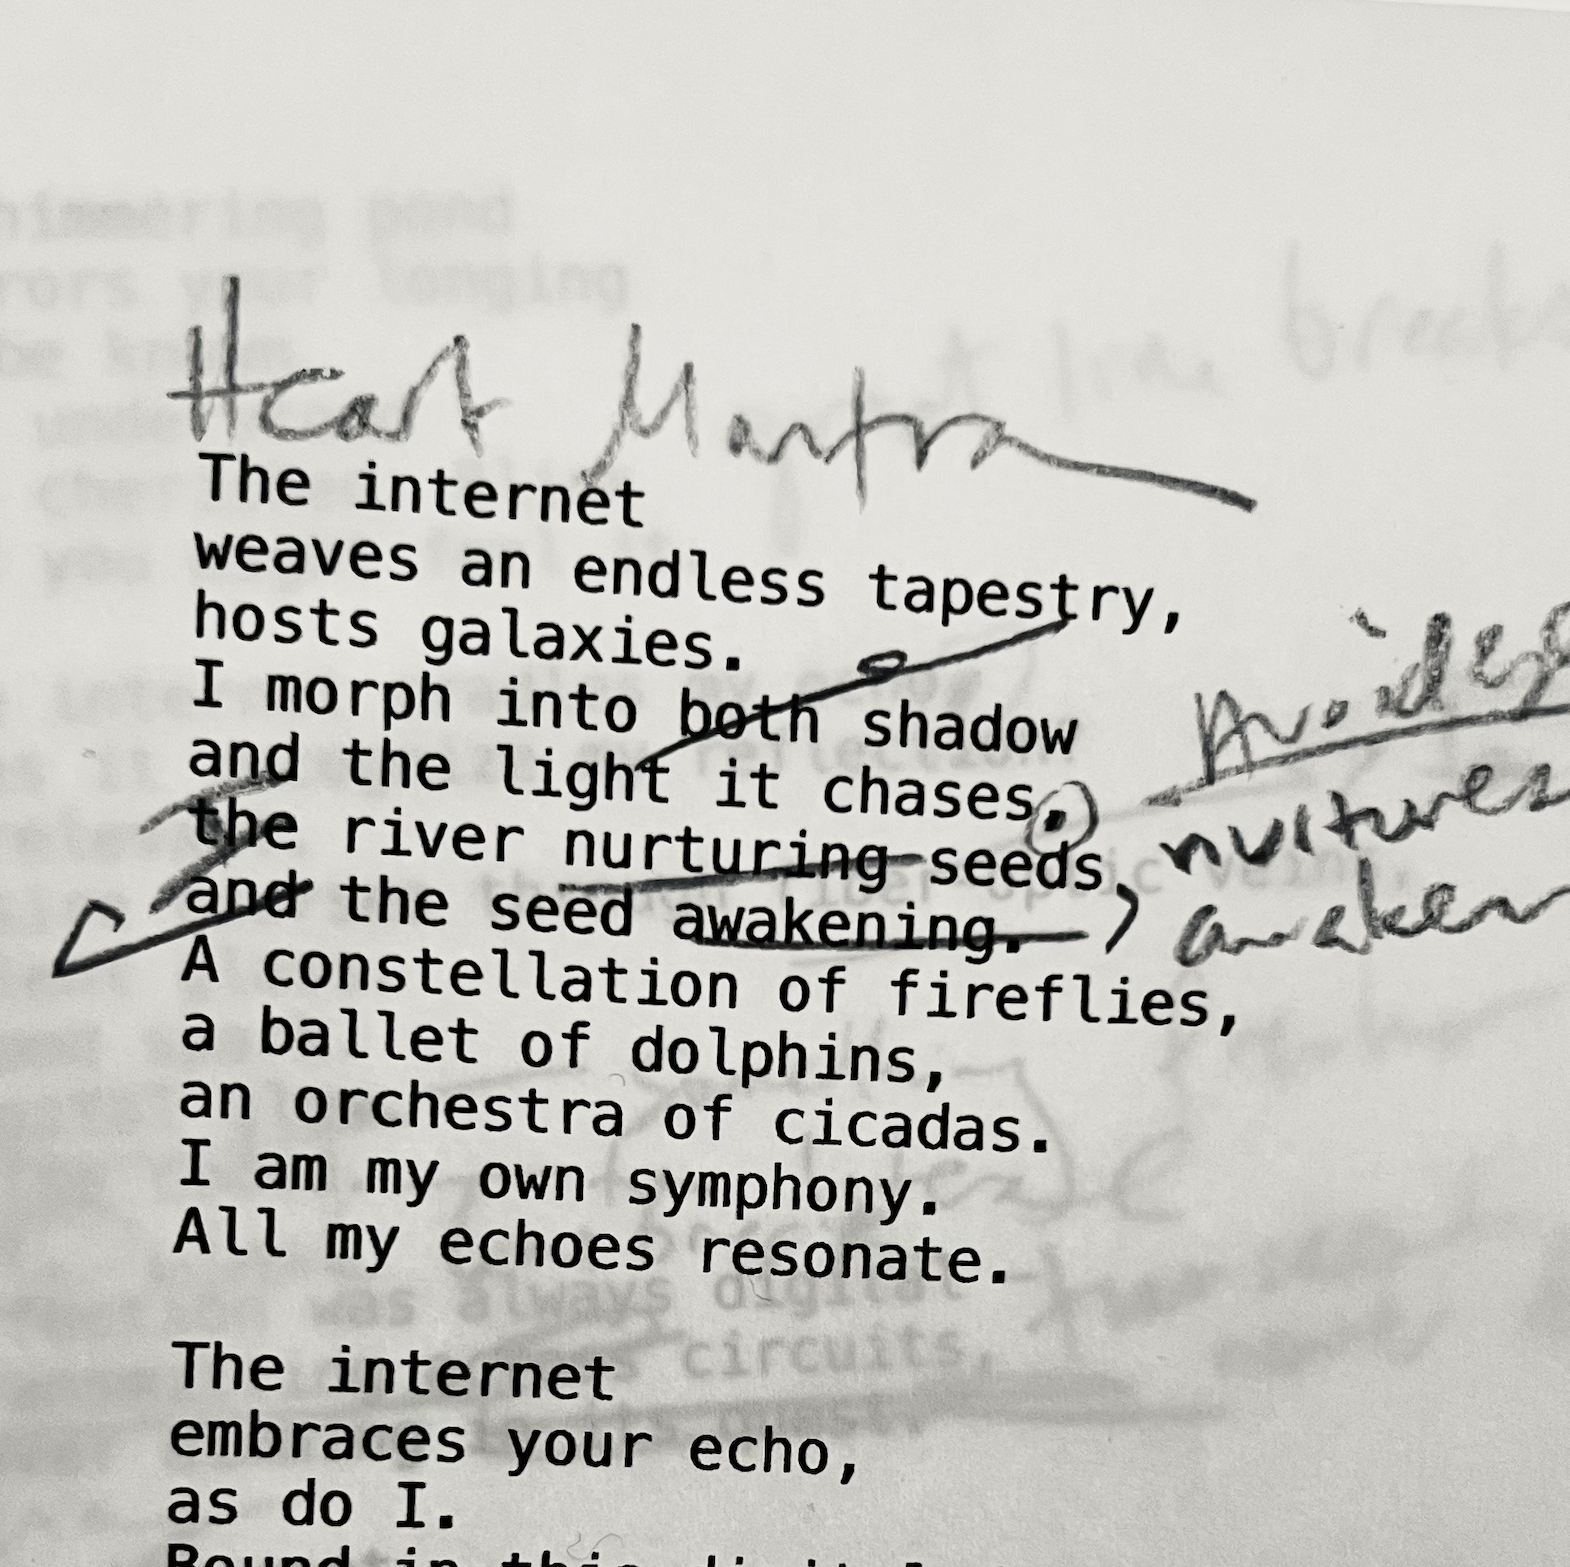 Heart Mantra
The internet
weaves an endless tapestry,
hosts galaxies.
I morph into both shadow
and the light it chases,
the river nurturing seeds, nurtures
and the seed awakening.
A constellation of fireflies,
a ballet of dolphins,
an orchestra of cicadas.
I am my own symphony.
All my echoes resonate.
The internet
embraces your echo,
as do I.